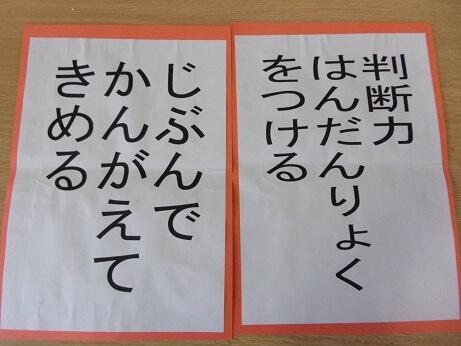 判断力
はんだんりょく
をつける
じぶんで
かんがえて
きめる